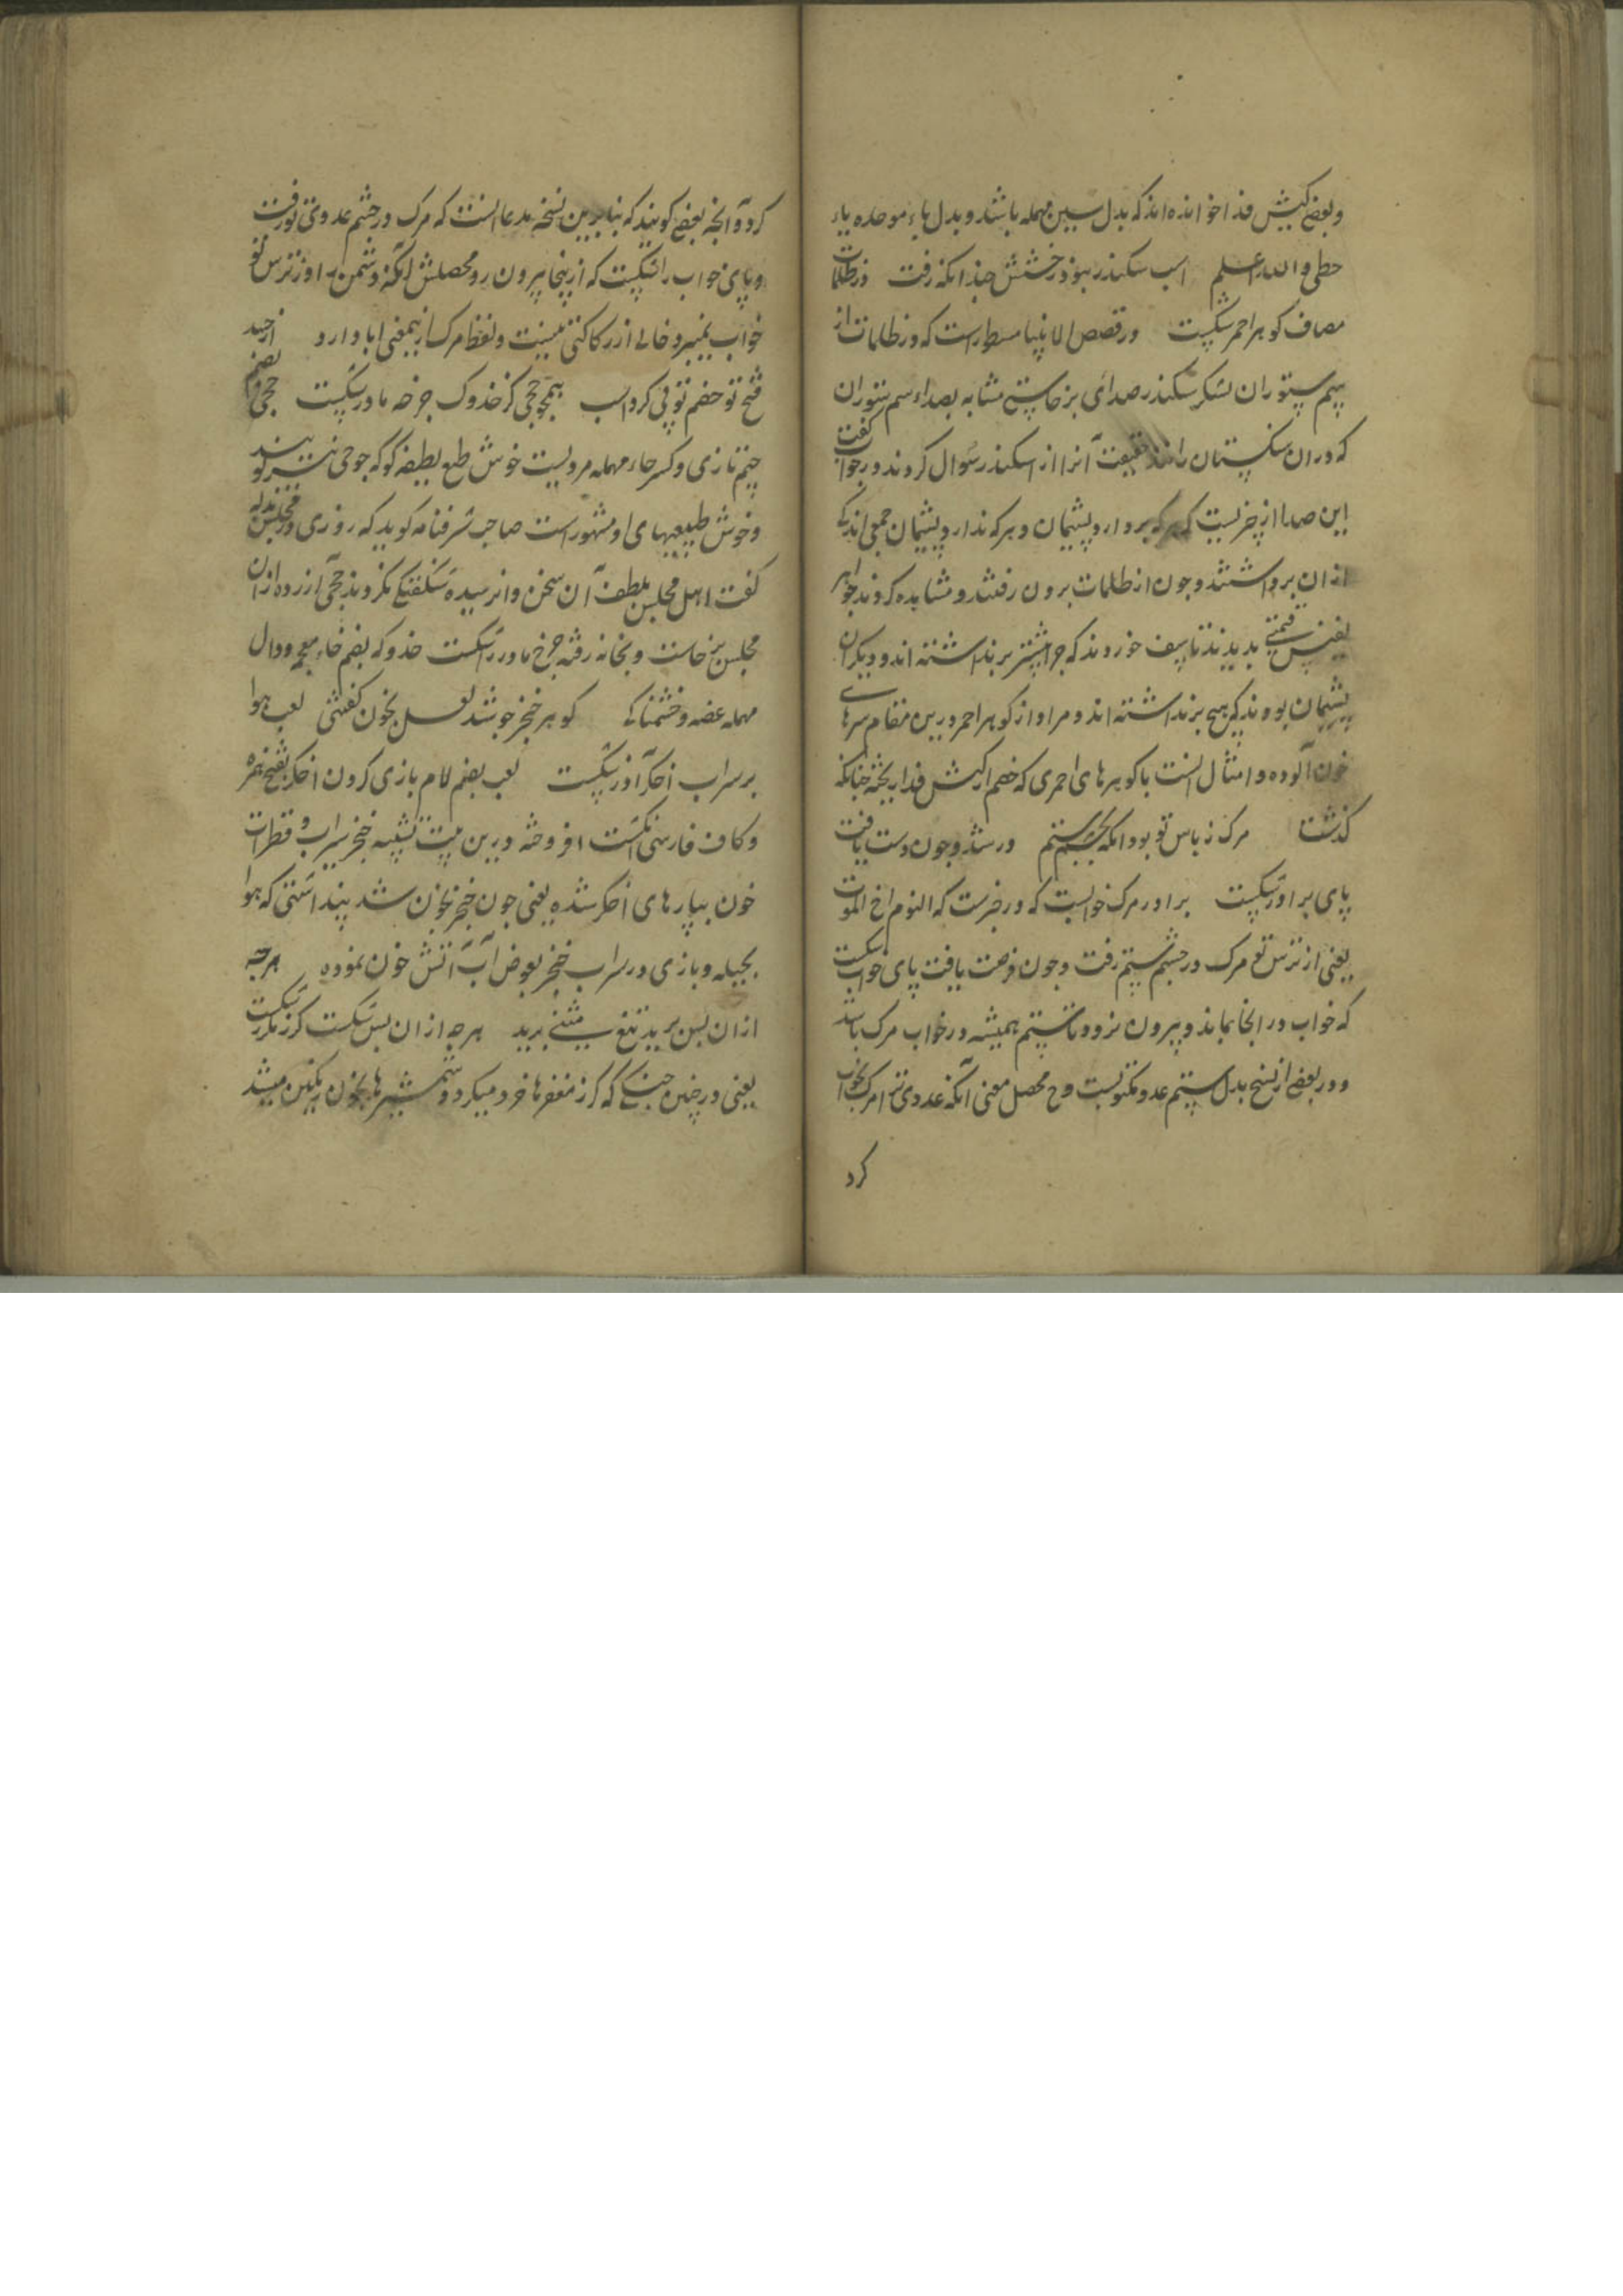 و بعضی کیش فدا خوانده‌اند که بدل سین مهمله باشد و بدل باء موحده یاء
حطی والله اعلم اسب سکندر نبود رخشش چندانکه رفت در ظلمات
مصاف کوهر احمر شکست در قصص الانبیا مسطر است که در ظلمات از
سم ستوران لشکر سکندر صدای برخاستی مشابه بصداء سم ستوران
که در ان سنکستان رانند حقیقت آنرا از اسکندر سوال کردند در جواب گفت
این صدا از چیزیست که هر که بردارد پشیمان و هر که ندارد پشیمان جمعی اندکی
ازان برداشتند و چون از ظلمات برون رفتند و مشاهده کردند جواهر
نفیس قیمتی بدیدند تاسف خوردند که چرا بیشتر برنداشته اند و دیکران
پشیمان بودند که هیچ برنداشته اند و مراد از کوهر احمر درین مقام سرهای
خون آلوده و امثال انست با کوهرهای احمری که خصم از کیش فدا ریخته چنانکه
کذشت مرک ز باس تو بود انکه بچشم ستم در شد و چون دست یافت
پای برادر شکست برادر مرک خوابست که در خبرست که النوم اخ الموت
یعنی از ترس تو مرک در چشم ستم رفت و چون فرصت یافت پای خواب شکست
که خواب در انجا بماند و بیرون نرود تا ستم همیشه در خواب مرک باشد
و در بعضی از نسخ بدل ستم عدو مکتوبست و ح محصل معنی آنکه عدوی ترا مرک بخواب
کرد
کرد و آنچه بعضی کویند که بنا برین نسخه مدعا انست که مرک در چشم عدوی تو رفت
و پای خواب را شکست که از پنجا بیرون رو محصلش آنکه دشمن را از ترس تو
خواب نمیبرد خالی از رکاکتی نیست و لفظ مرک ازین معنی ابا دارد از حسد
فتح تو خصم تو پی کرد اسب همچو جحی کز خدوک چرخه مادر شکست جحی بضم
جیم تازی و کسر حاء مهمله مردیست خوش طبع لطیفه کو که جوحی نیز کویند
و خوش طبیعیهای او مشهور است صاحب شرفنامه کوید که روزی در مجلس بذله
کفت اهل مجلس بلطف آن سخن وانرسیده شکفتگی نکردند جحی آزرده ازان
مجلس برخاست و بخانه رفته چرخ مادر را شکست خدوک بضم خاء معجمه و دال
مهمله غصه و خشمناکی کوهر خنجر چو شد لعل بخون کفتئی لعب هوا
بر سراب اخکر آذر شکست لعب بضم لام بازی کردن اخکر بفتح همزه
و کاف فارسی انکشت افروخته درین بیت تشبیه خنجر بسراب و قطرات
خون بپارهای اخکر شده یعنی چون خنجر بخون شد پنداشتی که هوا
بحیله و بازی در سراب خنجر بعوض آب آتش خون نموده هرچه
ازان پس برید تیغ بیثنی برید هرچه ازان پس شکست کرز مکرر شکست
یعنی در چنین جنگی که کرز مغفرها خرد میکرد و شمشیرها بخون رنگین میشد